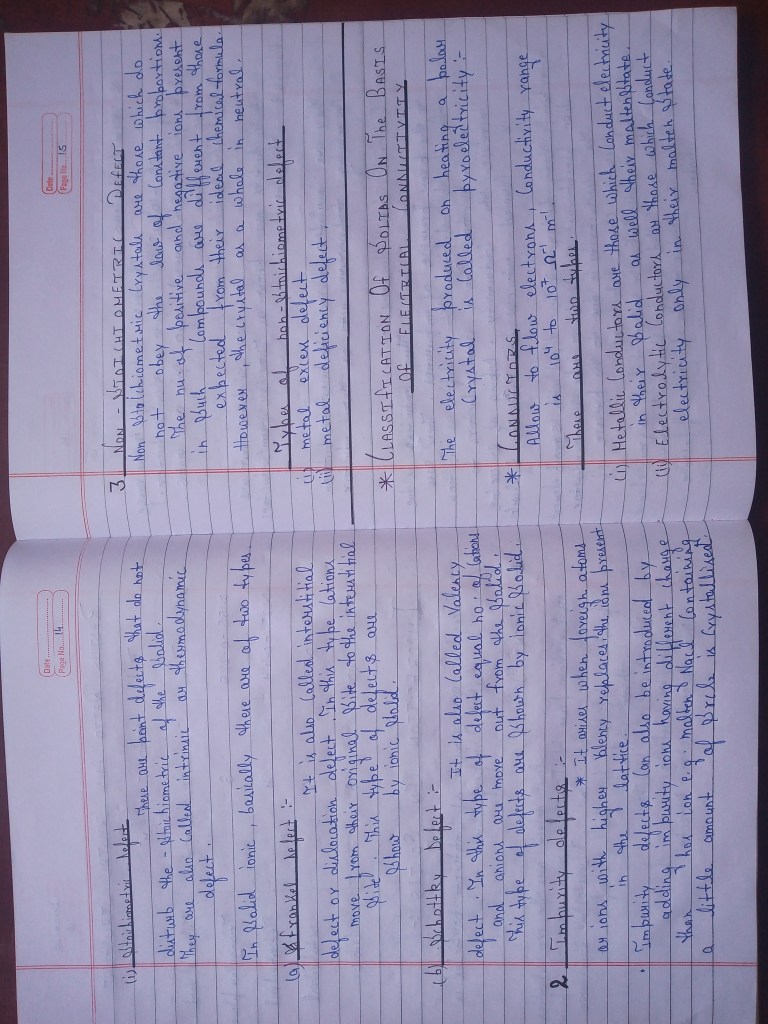 Date
Page No. 14
(i) Stoichiometric Defect
There are point defects that do not
disturb the - Stoichiometric of the Solid.
They are also Called intrinsic or thermodynamic
defect.
In Solid ionic, basically there are of two types.
(a) frankel Defect :-
It is also Called interstitial
defect or dislocation defect. In this type Cations
move from their original Site to the interstitial
Site. This type of defects are
Show by ionic Solid.
(b) Schottky Defect :-
It is also Called Valency
defect. In this type of defect equal no. of Cations
and anions are move out from the Solid.
This type of defects are Shown by ionic Solid.
2 Impurity defects :-
* It arises when foreign atoms
or ions with higher Valency replaces the ions present
in the lattice.
• Impurity defects Can also be introduced by
adding impurity ions having different Charge
than hos ion e.g. molten NaCl Containing
a little amount of SrCl₂ is Crystallised.
Date
Page No. 15
3 NON - STOICHIOMETRIC DEFECT
Non Stoichiometric Crystals are those which do
not obey the law of Constant proportions.
The nu of positive and negative ions present
in Such Compounds are different from those
expected from their ideal chemical formula.
However, the Crystal as a whole in neutral.
Types of non-Stoichiometric defect
(i) metal excess defect
(ii) metal deficiency defect.
* CLASSIFICATION OF SOLIDS ON THE BASIS
OF ELECTRICAL CONDUCTIVITY
The electricity produced on heating a polar
Crystal is Called pyroelectricity :-
* CONDUCTORS
Allow to flow electrons, Conductivity range
is 10⁴ to 10⁷ Ω⁻¹ m⁻¹
There are two types.
(i) Metallic Conductors are those which Conduct electricity
in their Solid as well their molten State.
(ii) Electrolytic Conductors are those which Conduct
electricity only in their molten State.